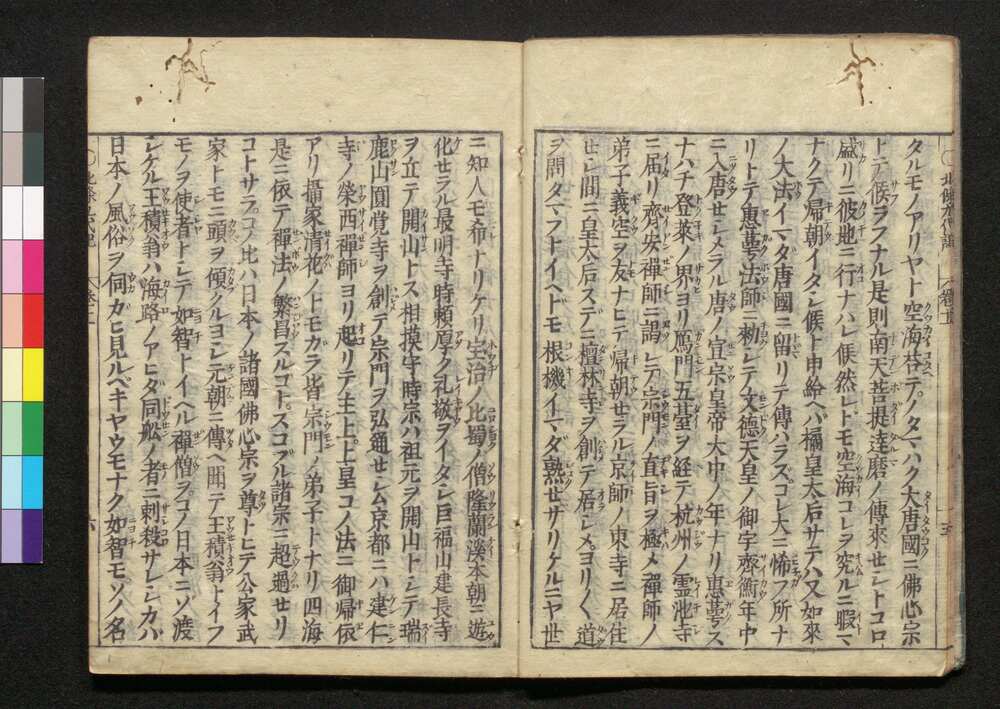 タルモノアリヤト空海答テノタマハク大唐國ニ佛心宗
トテ候ラフナル是則南天菩提達磨ノ傳來セシトコロ
盛リニ彼地ニ行ナハレ候然レドモ空海コレヲ究ルニ暇マ
ナクテ歸朝イタシ候ト申給ヘバ橘皇太后サテハ又如來
ノ大法イマダ唐國ニ留リテ傳ハラズコレ大ニ怖フ所ナ
リトテ惠萼法師ニ勅シテ文德天皇ノ御宇齊衡年中
ニ入唐セシメラル唐ノ宣宗皇帝大中ノ年ナリ惠萼ス
ナハチ登萊ノ界ヨリ鴈門五臺ヲ経テ杭州ノ靈池寺
ニ届リ齊安禪師ニ謁シテ宗門ノ直旨ヲ極メ禪師ノ
弟子義空ヲ友ナヒテ歸朝セラル京師ノ東寺ニ居住
セシ間ニ皇太后ステニ檀林寺ヲ創テ居シメヨリ〱道
ヲ問タマフトイヘドモ根機イマダ熟セザリケルニヤ世
ニ知人モ希ナリケリ宝治ノ比蜀ノ僧隆蘭溪本朝ニ遊
化セラル最明寺時頼厚ク礼敬ヲイタシ巨福山建長寺
ヲ立テ開山トス相摸守時宗ハ祖元ヲ開山トシテ瑞
鹿山圓覺寺ヲ創テ宗門ヲ弘通セシム京都ニハ建仁
寺ノ榮西禪師ヨリ起リテ主上上皇コノ法ニ御帰依
アリ攝家清花ノトモガラ皆宗門ノ弟子トナリ四海
是ニ依テ禪法ノ繁昌スルコトスコブル諸宗ニ超過セリ
コトサラコノ比ハ日本ノ諸國佛心宗ヲ尊トヒテ公家武
家トモニ頭ヲ傾クルヨシ元朝ニ傳ヘ聞テ王積翁トイフ
モノヲ使者トシテ如智トイヘル禪僧ヲコノ日本ニソ渡
シケル王積翁ハ海路ノアヒダ同舩ノ者ニ刺殺サレシカバ
日本ノ風俗ヲ伺ガヒ見ルベキヤウモナク如智モソノ名